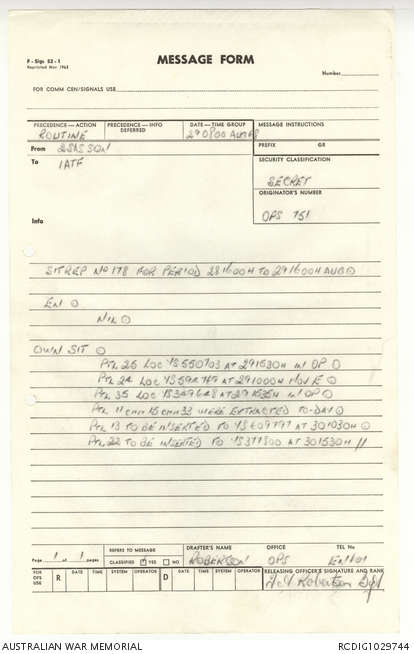 F - Sigs 52 - 1
Reprinted Mar 1963
MESSAGE FORM
Number
FOR COMM CEN/SIGNALS USE
PRECEDENCE—ACTION
ROUTINE
PRECEDENCE—INFO
DEFERRED
DATE—TIME GROUP
290800 AUG 68
MESSAGE INSTRUCTIONS
PREFIX GR
From 2SAS SQN
To 1ATF
SECURITY CLASSIFICATION
SECRET
ORIGINATOR'S NUMBER
OPS 751
Info
SITREP No 178 FOR PERIOD 281600H TO 291600H AUG ⊙
EN ⊙
NIL ⊙
OWN SIT ⊙
Ptl 25 LOC YS550703 AT 291530H in OP ⊙
Ptl 24 LOC AT 291000H
Ptl 35 LOC AT in OP ⊙
Ptl 11 cmm 15 cmm 33 WERE EXTRACTED TO-DAY ⊙
Ptl 13 TO BE INSERTED TO AT 301030H ⊙
Ptl 22 TO BE INSERTED TO AT 301530H //
Page 1 of 1 pages
REFERS TO MESSAGE
CLASSIFIED YES NO
DRAFTER'S NAME
ROBERTSON
OFFICE
OPS
TEL No
FOR OPS USE
R DATE TIME SYSTEM OPERATOR
D DATE TIME SYSTEM OPERATOR
RELEASING OFFICER'S SIGNATURE AND RANK
Robertson
AUSTRALIAN WAR MEMORIAL
RCDIG1029744